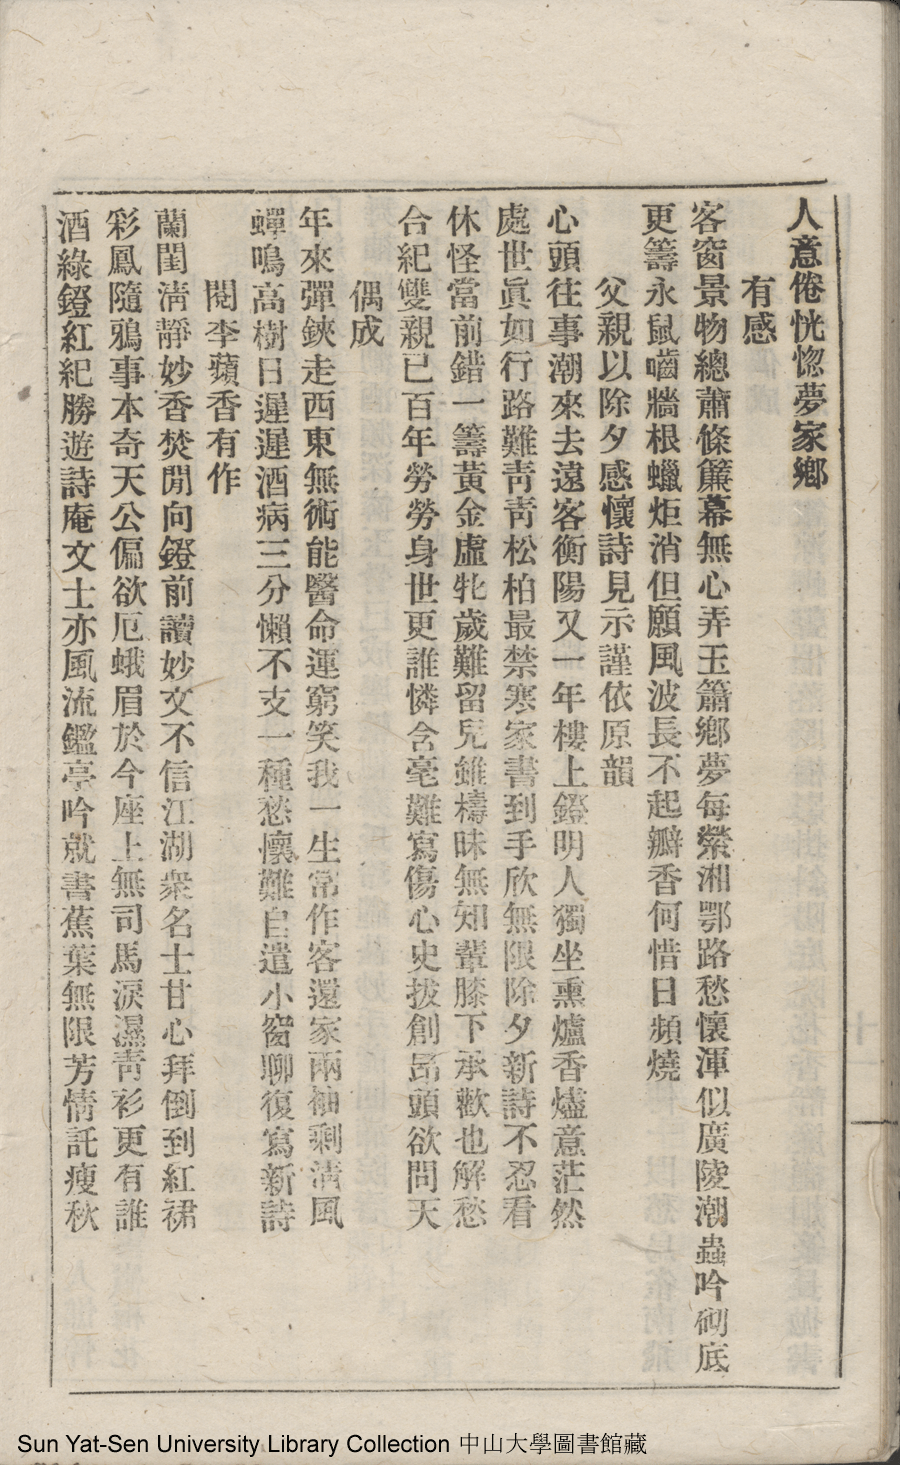 人意倦恍惚夢家鄉
有感
客窗景物總蕭條簾幕無心弄玉簫鄉夢每縈湘鄂路愁懷渾似廣陵潮蟲吟砌底
更籌永鼠嚙牆根蠟炬消但願風波長不起瓣香何惜日頻燒
父親以除夕感懷詩見示謹依原韻
心頭往事潮來去遠客衡陽又一年樓上鐙明人獨坐熏爐香燼意茫然
處世眞如行路難靑靑松柏最禁寒家書到手欣無限除夕新詩不忍看
休怪當前錯一籌黃金虛牝歲難留兒雖檮昧無知輩膝下承歡也解愁
合紀雙親已百年勞勞身世更誰憐含毫難寫傷心史拔劍昂頭欲問天
偶成
年來彈鋏走西東無術能醫命運窮笑我一生常作客還家兩袖剩淸風
蟬鳴高樹日遲遲酒病三分懶不支一種愁懷難自遣小窗聊復寫新詩
閱李蘋香有作
蘭閨淸靜妙香焚閒向鐙前讀妙文不信江湖衆名士甘心拜倒到紅裙
彩鳳隨鴉事本奇天公偏欲厄蛾眉於今座上無司馬淚濕靑衫更有誰
酒綠鐙紅紀勝遊詩庵文士亦風流鑑亭吟就書蕉葉無限芳情託瘦秋
Sun Yat-Sen University Library Collection 中山大學圖書館藏